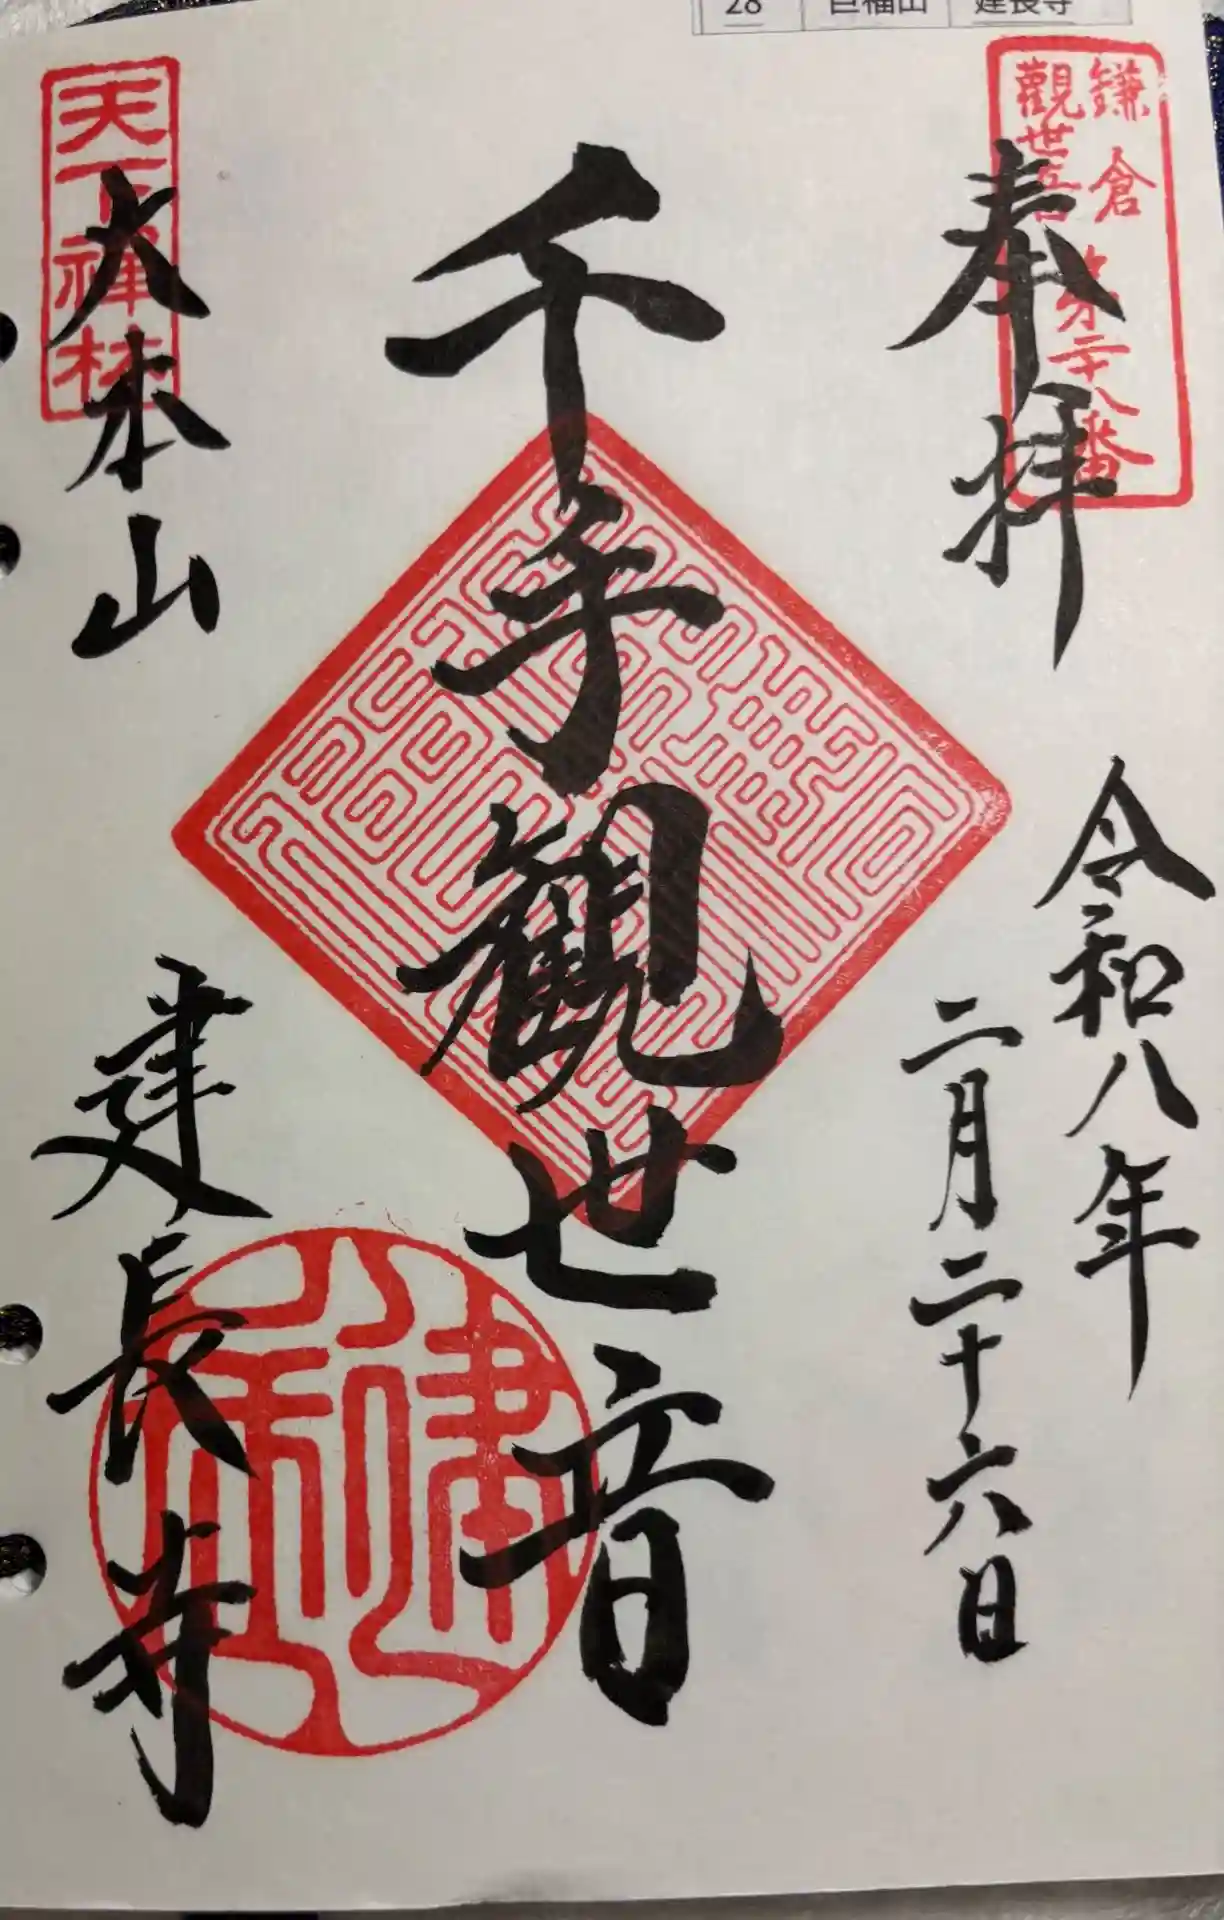 28 巨福山 建長寺
鎌倉
觀世音
第二十八番
奉拝
令和八年
二月二十六日
千手観世音
天下禅林
大本山
建長寺